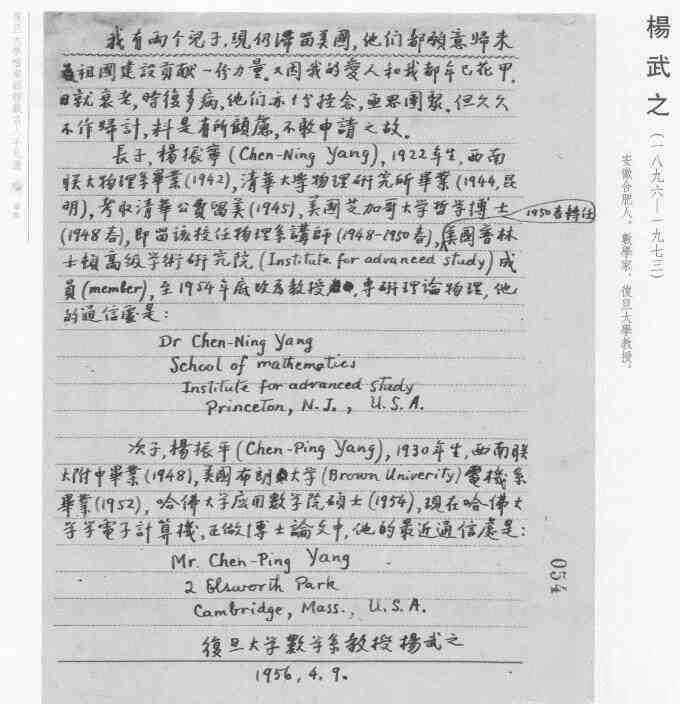 楊武之
(一八九六—一九七三)
安徽合肥人。數學家，復旦大學教授。
我有两个兒子，現仍滯留美國，他们都願意歸来
為祖國建設貢献一份力量，又因我的愛人和我都年已花甲，
日就衰老，時復多病，他们亦十分挂念，亟思團聚。但久久
不作歸計，料是有所顧慮，不敢申請之故。
長子，楊振寧 (Chen-Ning Yang)，1922年生，西南
联大物理系畢業(1942)，清華大學物理研究所畢業(1944，昆
明)，考取清華公費留美(1945)，美國芝加哥大学哲学博士
(1948春)，即留該校任物理系講師(1948-1950春)，
1950春轉任
美國普林
士頓高級学術研究院 (Institute for advanced study) 成
員(member)，至1954年底改為教授，專研理論物理，他
的通信處是：
Dr Chen-Ning Yang
School of mathematics
Institute for advanced study
Princeton, N.J., U.S.A.
次子，楊振平 (Chen-Ping Yang)，1930年生，西南联
大附中畢業(1948)，美國布朗大学 (Brown Univerity) 電機系
畢業(1952)，哈佛大学应用数学院碩士(1954)，現在哈佛大
学学電子計算機，正做博士論文中，他的最近通信處是：
Mr. Chen-Ping Yang
2 Elsworth Park
Cambridge, Mass., U.S.A.
復旦大学數学系教授楊武之
1956, 4. 9.
054